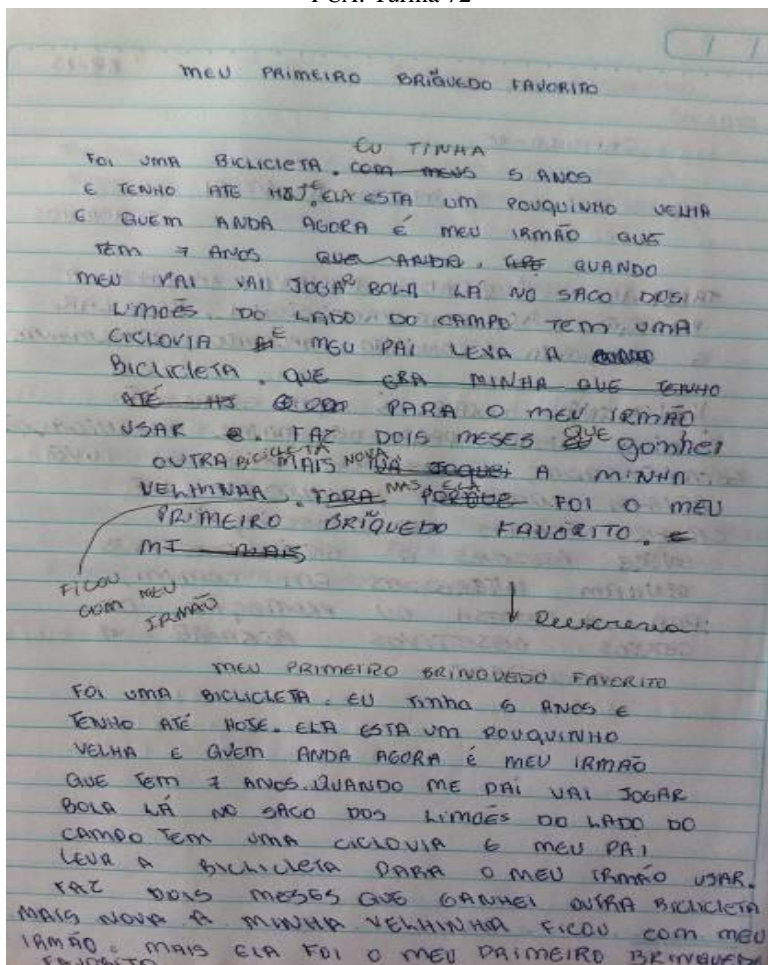 PCA: Turma 72
MEU PRIMEIRO BRIQUEDO FAVORITO
EU TINHA
FOI UMA BICLICLETA. COM MEUS 5 ANOS
E TENHO ATÉ HOJE. ELA ESTA UM POUQUINHO VELHA
E QUEM ANDA AGORA É MEU IRMÃO QUE
TEM 7 ANOS QUE ANDA. QUANDO
MEU PAI VAI JOGAR BOLA LÁ NO SACO DOS
LIMOÊS DO LADO DO CAMPO TEM UMA
CICLOVIA E MEU PAI LEVA A
BICLICLETA. QUE ERA MINHA QUE TENHO
ATÉ PARA O MEU IRMÃO
USAR e. FAZ DOIS MESES QUE gainhei
OUTRA BICICLETA MAIS NOVA JÁ JOGUEI A MINHA
VELHINHA. FORA MAS ELA PORQUE FOI O MEU
PRIMEIRO BRIQUEDO FAVORITO. E
MI MAIS
FICOU
COM MEU
IRMÃO
Reescrevia:
MEU PRIMEIRO BRINQUEDO FAVORITO
FOI UMA BICLICLETA. EU Tinha 5 ANOS E
TENHO ATÉ HOSE. ELA ESTA UM POUQUINHO
VELHA E QUEM ANDA AGORA É MEU IRMÃO
QUE TEM 7 ANOS. QUANDO ME PAI VAI JOGAR
BOLA LÁ NO SACO DOS LIMOÊS DO LADO DO
CAMPO TEM UMA CICLOVIA E MEU PAI
LEVA A BICLICLETA PARA O MEU IRMÃO USAR.
FAZ DOIS MESES QUE GANHEI OUTRA BICLICLETA
MAIS NOVA A MINHA VELHINHA FICOU COM MEU
IRMÃO. MAIS ELA FOI O MEU PRIMEIRO BRINQUEDO
FAVORITO